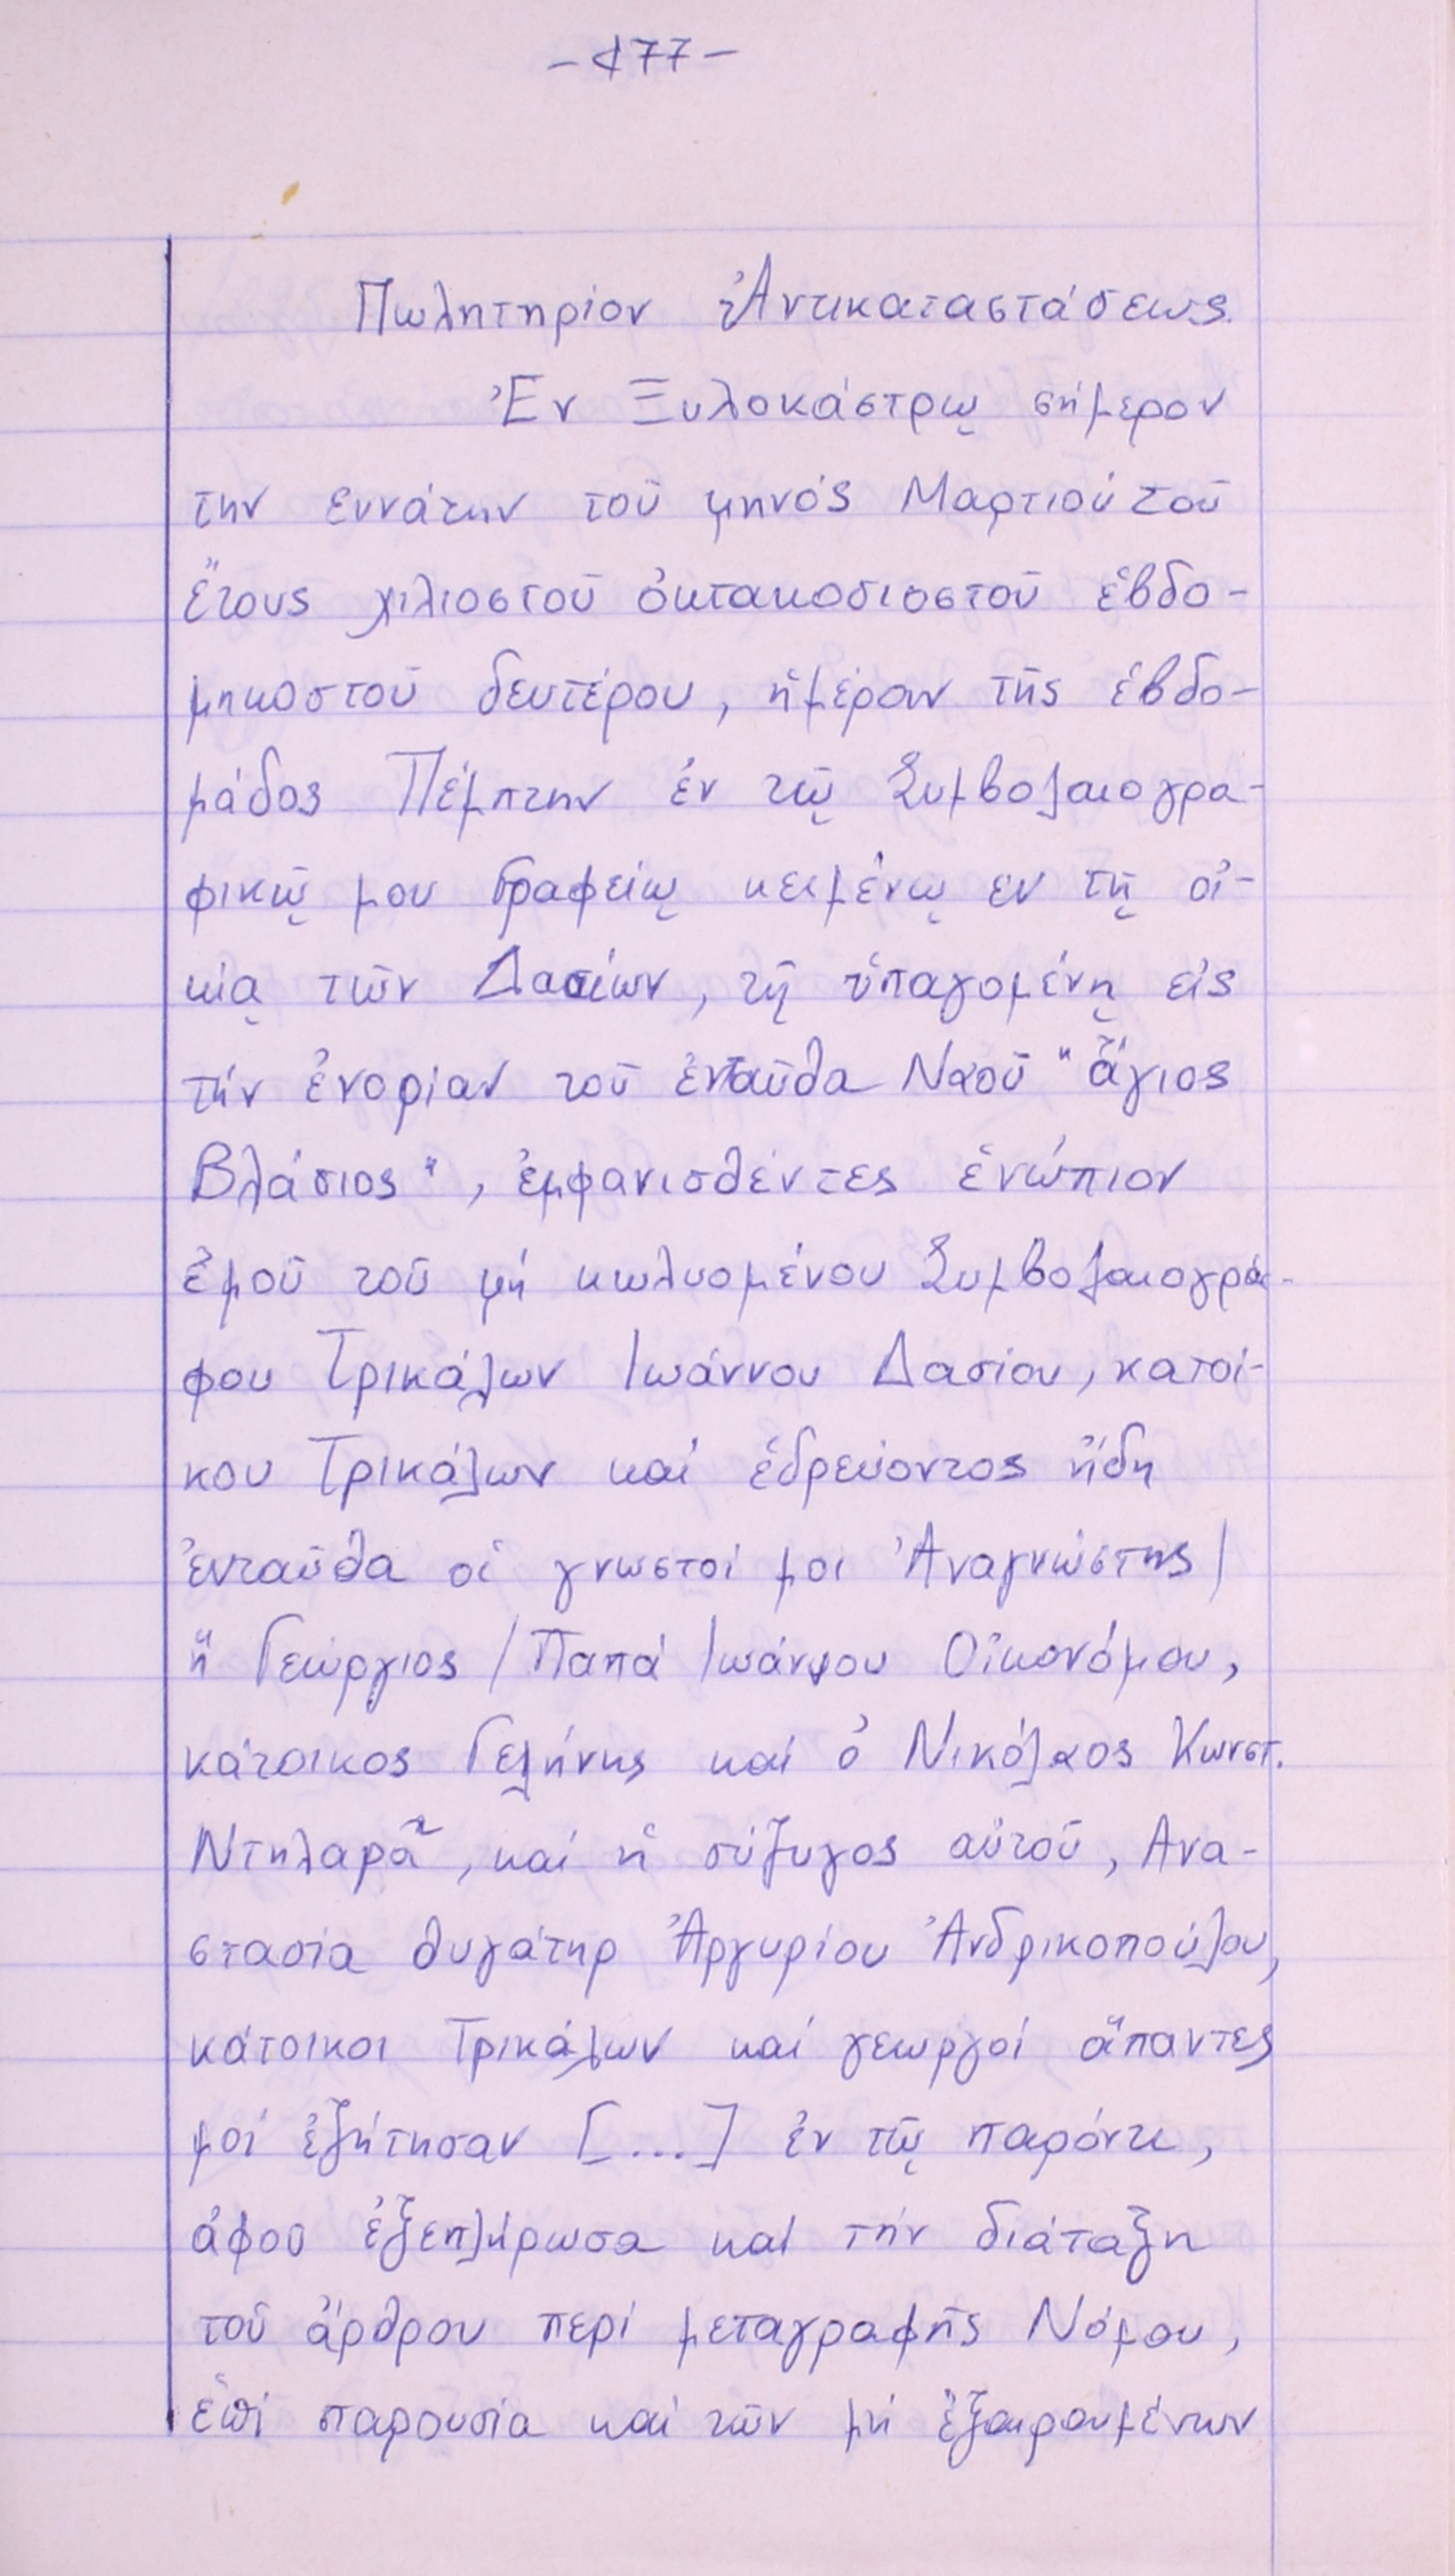 -177-
Πωλητηρίον Ἀντικαταστάσεως.
Ἐν Ξυλοκάστρῳ σήμερον
την εννάτην τοῦ μηνός Μαρτιού τοῦ
ἔτους χιλιοστοῦ ὀκτακοσιοστοῦ ἑβδο-
μηκοστοῦ δευτέρου, ἡμέραν τῆς ἑβδο-
μάδος Πέμπτην ἐν τῷ Συμβολαιογρα-
φικῷ μου Γραφείῳ κειμένῳ εν τῇ οἰ-
κίᾳ τῶν Δασίων, τῇ ὑπαγομένῃ εἰς
τήν ἐνορίαν τοῦ ἐνταῦθα Ναοῦ "ἅγιος
Βλάσιος", ἐμφανισθέντες ἐνώπιον
ἐμοῦ τοῦ μή κωλυομένου Συμβολαιογρά-
φου Τρικάλων Ιωάννου Δασίου, κατοί-
κου Τρικάλων καί ἑδρεύοντος ἤδη
ἐνταῦθα οἱ γνωστοί μοι Ἀναγνώστης/
ἤ Γεώργιος/Παπά Ιωάννου Οἰκονόμου,
κάτοικος Γελήνης καί ὁ Νικόλαος Κωνστ.
Ντηλαρᾶ, καί ἡ σύζυγος αὐτοῦ, Ανα-
στασία θυγάτηρ Ἀργυρίου Ἀνδρικοπούλου,
κάτοικοι Τρικάλων καί γεωργοί ἅπαντες
μοί ἐζήτησαν [...] ἐν τῷ παρόντι,
ἀφοῦ ἐξεπλήρωσα καί τήν διάταξη
τοῦ ἄρθρου περί μεταγραφῆς Νόμου,
ἐπί παρουσία καί τῶν μή ἐξαιρουμένων